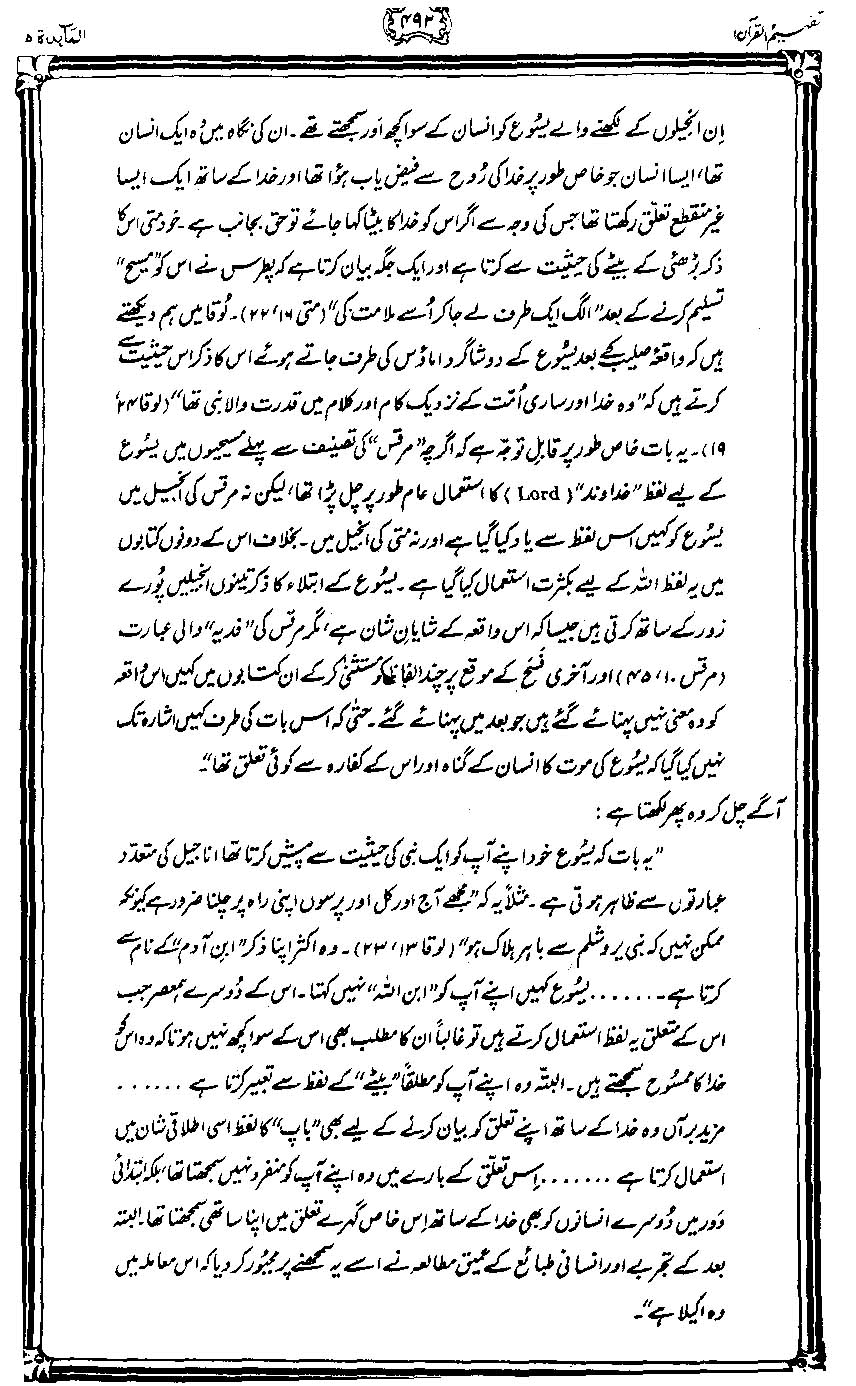 تفہیم القرآن ۱
۴۹۲
المآئدۃ ۵
اِن انجیلوں کے لکھنے والے یسُوع کو انسان کے سوا کچھ اَور سمجھتے تھے ۔ ان کی نگاہ میں وُہ ایک انسان
تھا، ایسا انسان جو خاص طور پر خدا کی رُوح سے فیض یاب ہؤا تھا اور خدا کے ساتھ ایک ایسا
غیر منقطع تعلق رکھتا تھا جس کی وجہ سے اگر اس کو خدا کا بیٹا کہا جائے تو حق بجانب ہے ۔ خود متی اس کا
ذکر بڑھئی کے بیٹے کی حیثیت سے کرتا ہے اور ایک جگہ بیان کرتا ہے کہ پطرس نے اس کو ”مسیح“
تسلیم کرنے کے بعد ”الگ ایک طرف لے جا کر اُسے ملامت کی“ (متی ۱۶، ۲۲) ۔ لُوقا میں ہم دیکھتے
ہیں کہ واقعۂ صلیب کے بعد یسُوع کے دو شاگرد اماؤس کی طرف جاتے ہوئے اس کا ذکر اس حیثیت سے
کرتے ہیں کہ ”وہ خدا اور ساری اُمّت کے نزدیک کام اور کلام میں قدرت والا نبی تھا“ (لوقا ۲۴،
۱۹) ۔ یہ بات خاص طور پر قابلِ توجّہ ہے کہ اگرچہ ”مرقس“ کی تصنیف سے پہلے مسیحیوں میں یسُوع
کے لیے لفظ ”خداوند“ (Lord) کا استعمال عام طور پر چل پڑا تھا، لیکن نہ مرقس کی انجیل میں
یسُوع کو کہیں اس لفظ سے یاد کیا گیا ہے اور نہ متی کی انجیل میں ۔ بخلاف اس کے دونوں کتابوں
میں یہ لفظ اللہ کے لیے بکثرت استعمال کیا گیا ہے ۔ یسُوع کے ابتلاء کا ذکر تینوں انجیلیں پُورے
زور کے ساتھ کرتی ہیں جیسا کہ اس واقعہ کے شایانِ شان ہے، مگر مرقس کی ”فدیہ“ والی عبارت
(مرقس ۱۰، ۴۵) اور آخری فسح کے موقع پر چند الفاظ کو مستثنیٰ کر کے ان کتابوں میں کہیں اس واقعہ
کو وہ معنی نہیں پہنائے گئے ہیں جو بعد میں پہنائے گئے ۔ حتٰی کہ اس بات کی طرف کہیں اشارہ تک
نہیں کیا گیا کہ یسُوع کی موت کا انسان کے گناہ اور اس کے کفارہ سے کوئی تعلق تھا“ ۔
آگے چل کر وہ پھر لکھتا ہے :
”یہ بات کہ یسُوع خود اپنے آپ کو ایک نبی کی حیثیت سے پیش کرتا تھا اناجیل کی متعدّد
عبارتوں سے ظاہر ہوتی ہے ۔ مثلاً یہ کہ ”مجھے آج اور کل اور پرسوں اپنی راہ پر چلنا ضرور ہے کیونکہ
ممکن نہیں کہ نبی یروشلم سے باہر ہلاک ہو“ (لوقا ۱۳، ۲۳) ۔ وہ اکثر اپنا ذکر ”ابن آدم“ کے نام سے
کرتا ہے ۔ ....... یسُوع کہیں اپنے آپ کو ”ابن اللہ“ نہیں کہتا ۔ اس کے دُوسرے ہمعصر جب
اس کے متعلق یہ لفظ استعمال کرتے ہیں تو غالباً ان کا مطلب بھی اس کے سوا کچھ نہیں ہوتا کہ وہ اس کو
خدا کا ممسُوح سمجھتے ہیں ۔ البتّہ وہ اپنے آپ کو مطلقاً ”بیٹے“ کے لفظ سے تعبیر کرتا ہے ......
مزید برآں وہ خدا کے ساتھ اپنے تعلق کو بیان کرنے کے لیے بھی ”باپ“ کا لفظ اسی اطلاقی شان میں
استعمال کرتا ہے ....... اِس تعلّق کے بارے میں وہ اپنے آپ کو منفرد نہیں سمجھتا تھا، بلکہ ابتدائی
دَور میں دُوسرے انسانوں کو بھی خدا کے ساتھ اِس خاص گہرے تعلق میں اپنا ساتھی سمجھتا تھا ۔ البتہ
بعد کے تجربے اور انسانی طبائع کے عمیق مطالعہ نے اسے یہ سمجھنے پر مجبُور کر دیا کہ اس معاملہ میں
وہ اکیلا ہے“ ۔